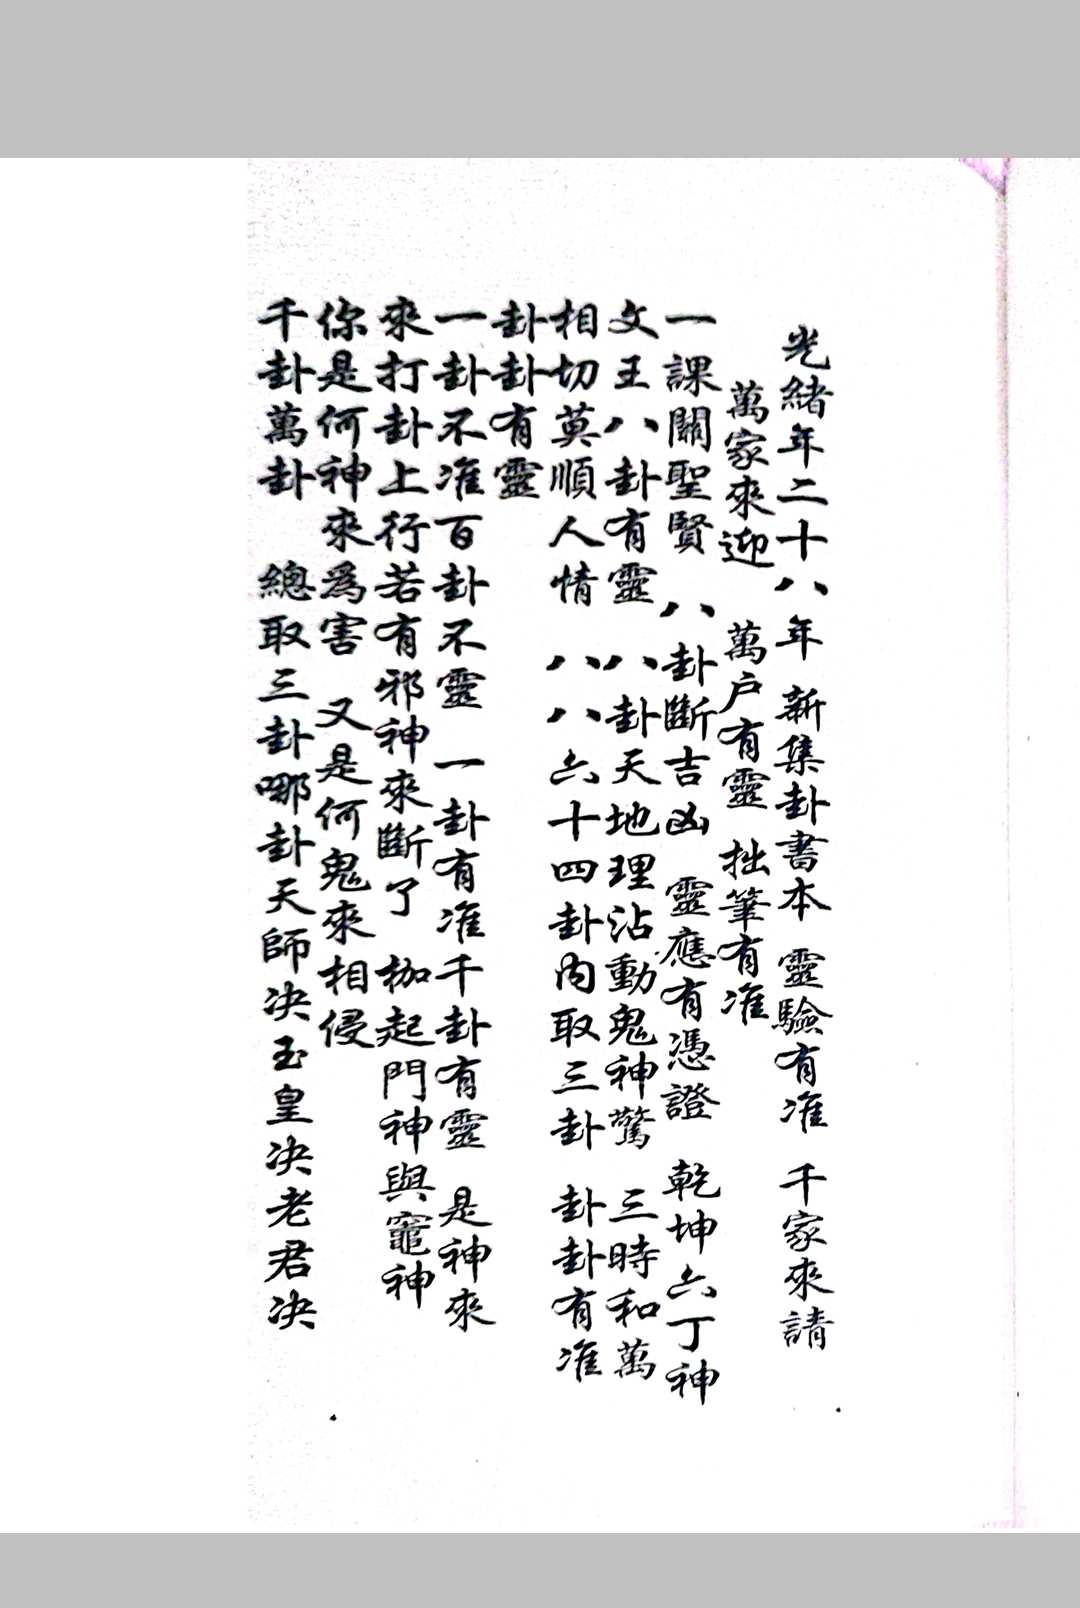 光緒年二十八年 新集卦書本 靈驗有准 千家來請
萬家來迎 萬户有靈 拙筆有准
一課關聖賢 八卦斷吉凶 靈應有憑證 乾坤六丁神
文王八卦有靈 八卦天地理沾動鬼神驚 三時和萬
相切莫順人情 八八六十四卦内取三卦 卦卦有准
卦卦有靈
一卦不准百卦不靈 一卦有准千卦有靈 是神來
來打卦上行若有邪神來斷了 枷起門神與竈神
你是何神來爲害 又是何鬼來相侵
千卦萬卦 總取三卦哪卦天師决玉皇决老君决